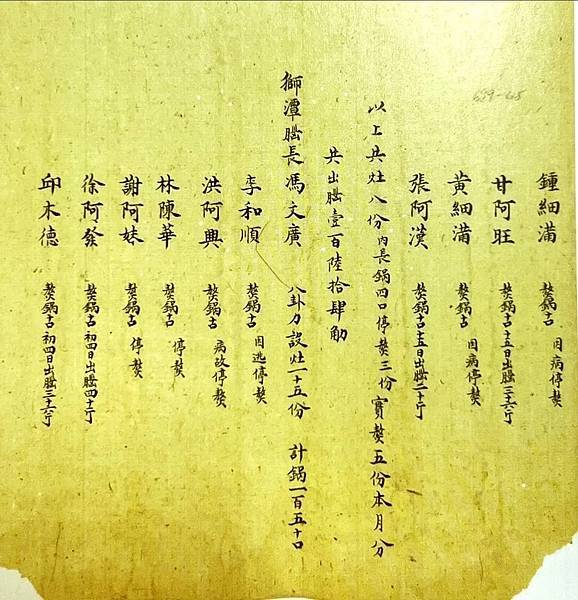 鍾細滿 熬鍋十口 因病停熬
甘阿旺 熬鍋十口 十五日出腦三十六斤
黄細滿 熬鍋十口 因病停熬
張阿漢 熬鍋十口 十五日出腦二十斤
以上共灶八份內長鍋四口停熬三份實熬五份本月分
共出腦壹百陸拾肆觔
獅潭腦長馮文廣 八卦力設灶一十五份 計鍋一百五十口
李和順 熬鍋十口 因逃停熬
洪阿興 熬鍋十口 病故停熬
林陳華 熬鍋十口 停熬
謝阿妹 熬鍋十口 停熬
徐阿發 熬鍋十口 初四日出腦四十二斤
邱木德 熬鍋十口 初四日出腦三十六斤